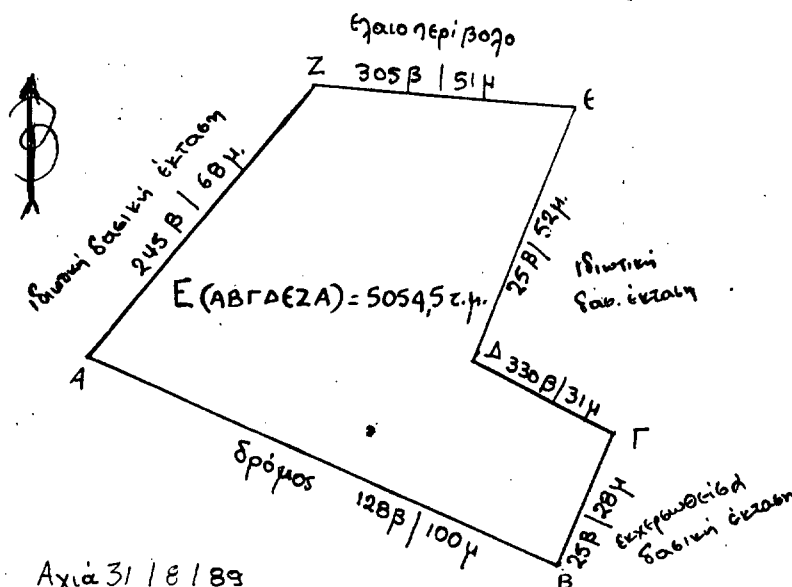 ελαιοπερίβολο
Ζ
305β / 51μ
Ε
ιδιωτική δασική έκταση
245β / 68μ.
25β / 52μ.
ιδιωτική
δασ. έκταση
Ε (ΑΒΓΔΕΖΑ) = 5054,5 τ.μ.
Α
Δ
330β / 31μ
Γ
δρόμος
128β / 100μ
25β / 28μ
εκχερσωθείσα
δασική έκταση
Β
Αχιά 31 / 8 / 89